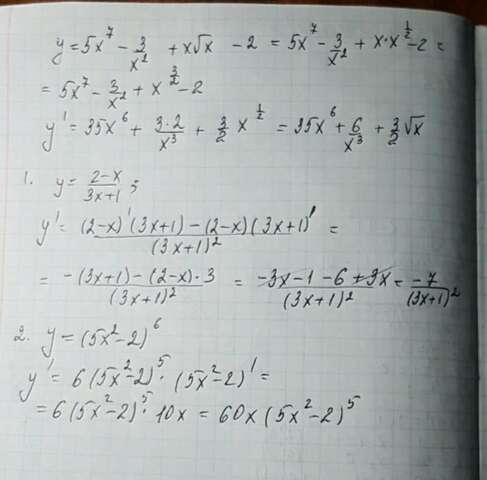 y = 5x⁷ - 3/x² + x√x - 2 = 5x⁷ - 3/x² + x·x^(1/2) - 2 =
= 5x⁷ - 3/x² + x^(3/2) - 2
y' = 35x⁶ + (3·2)/x³ + 3/2 x^(1/2) = 35x⁶ + 6/x³ + 3/2 √x
1. y = (2-x)/(3x+1);
y' = ((2-x)'(3x+1) - (2-x)(3x+1)')/(3x+1)² =
= (-(3x+1) - (2-x)·3)/(3x+1)² = (-3x - 1 - 6 + 3x)/(3x+1)² = -7/(3x+1)²
2. y = (5x² - 2)⁶
y' = 6(5x² - 2)⁵ · (5x² - 2)' =
= 6(5x² - 2)⁵ · 10x = 60x(5x² - 2)⁵